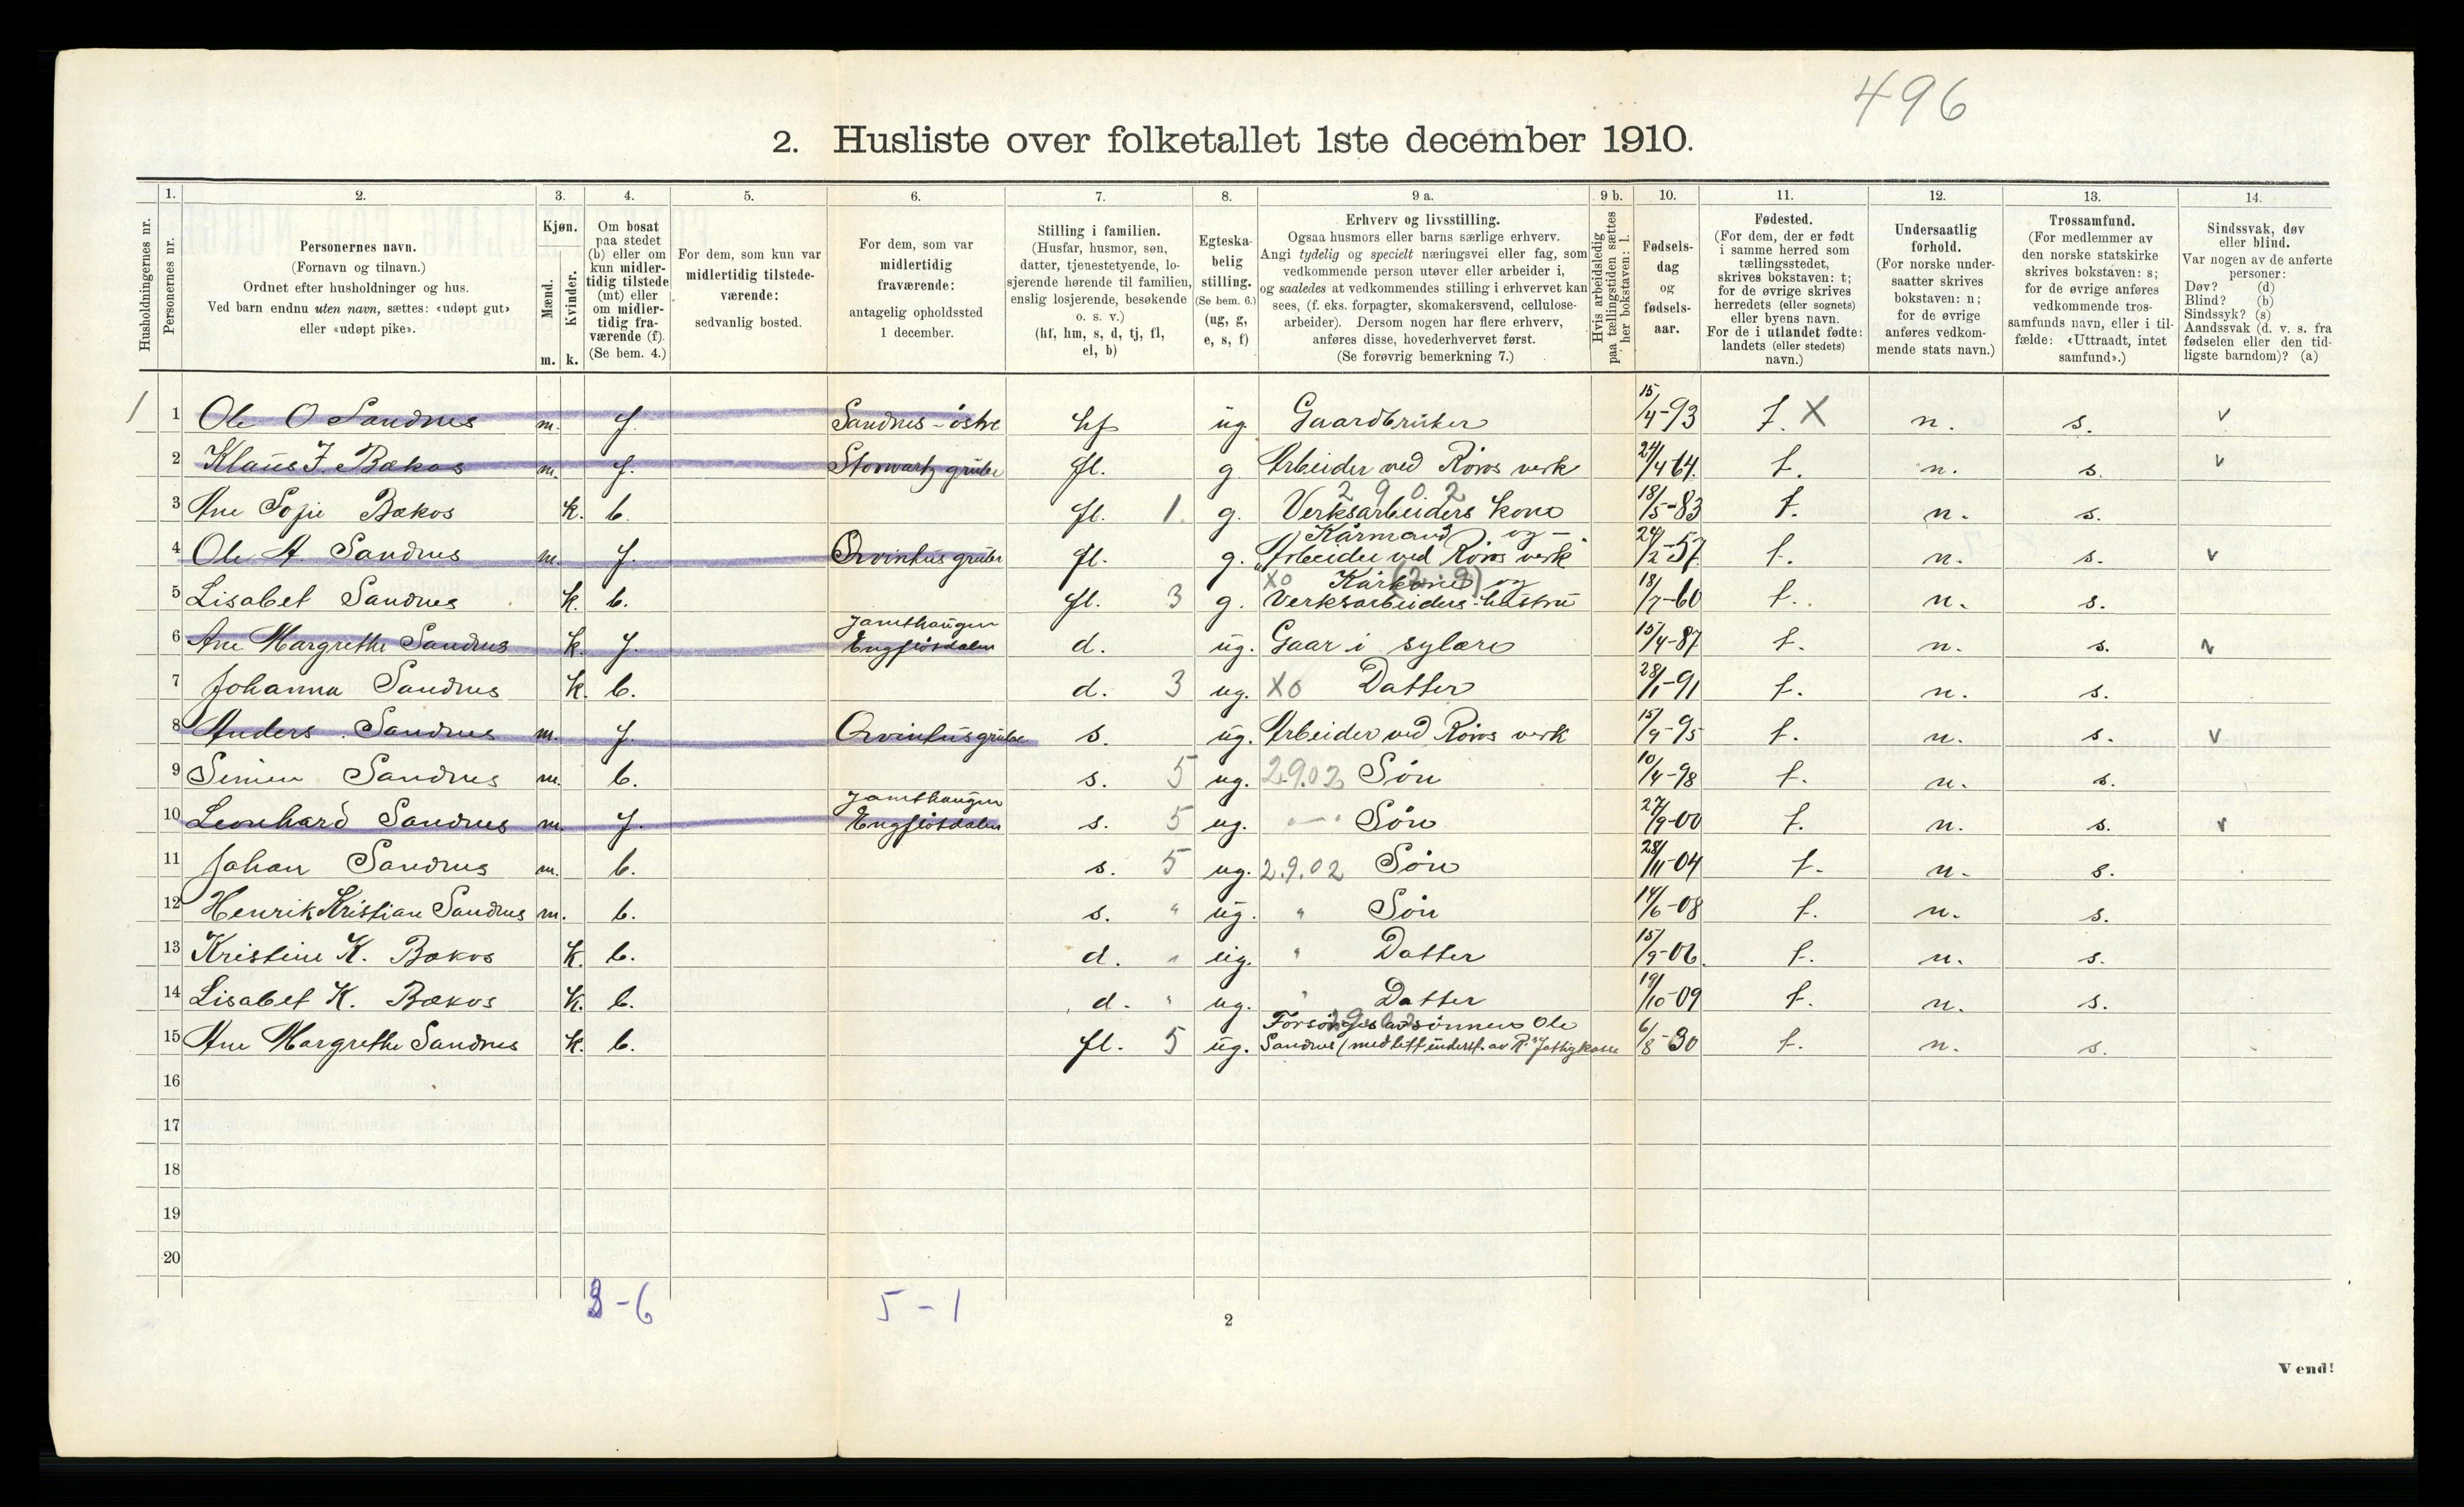 496
2. Husliste over folketallet 1ste december 1910.
Husholdningernes nr.
1. Personernes nr.
2. Personernes navn. (Fornavn og tilnavn.) Ordnet efter husholdninger og hus. Ved barn endnu uten navn, sættes: «udøpt gut» eller «udøpt pike».
3. Kjøn. Mænd. m. Kvinder. k.
4. Om bosat paa stedet (b) eller om kun midlertidig tilstede (mt) eller om midlertidig fraværende (f). (Se bem. 4.)
5. For dem, som kun var midlertidig tilstedeværende: sedvanlig bosted.
6. For dem, som var midlertidig fraværende: antagelig opholdssted 1 december.
7. Stilling i familien. (Husfar, husmor, søn, datter, tjenestetyende, losjerende hørende til familien, enslig losjerende, besøkende o. s. v.) (hf, hm, s, d, tj, fl, el, b)
8. Egteskabelig stilling. (Se bem. 6.) (ug, g, e, s, f)
9 a. Erhverv og livsstilling. Ogsaa husmors eller barns særlige erhverv. Angi tydelig og specielt næringsvei eller fag, som vedkommende person utøver eller arbeider i, og saaledes at vedkommendes stilling i erhvervet kan sees, (f. eks. forpagter, skomakersvend, cellulosearbeider). Dersom nogen har flere erhverv, anføres disse, hovederhvervet først. (Se forøvrig bemerkning 7.)
9 b. Hvis arbeidsledig paa tællingstiden sættes her bokstaven: l.
10. Fødselsdag og fødselsaar.
11. Fødested. (For dem, der er født i samme herred som tællingsstedet, skrives bokstaven: t; for de øvrige skrives herredets (eller sognets) eller byens navn. For de i utlandet fødte: landets (eller stedets) navn.)
12. Undersaatlig forhold. (For norske undersaatter skrives bokstaven: n; for de øvrige anføres vedkommende stats navn.)
13. Trossamfund. (For medlemmer av den norske statskirke skrives bokstaven: s; for de øvrige anføres vedkommende trossamfunds navn, eller i tilfælde: «Uttraadt, intet samfund».)
14. Sindssvak, døv eller blind. Var nogen av de anførte personer: Døv? (d) Blind? (b) Sindssyk? (s) Aandssvak (d. v. s. fra fødselen eller den tidligste barndom)? (a)
1 1 Ole O Sandnes m. f. Sandnes-östre hf ug. Gaardbruker 15/4-93 t. X n. s. v
2 Klaus J. Bakos m. f. Storvartz grube fl. g. Arbeider ved Röros verk 24/4 64. t. n. s. v
2 9 0 2
3 Ane Sofie Bækos k. b. fl. 1. g. Verksarbeiders kone 18/5-83 t. n. s.
Kårmand og
4 Ole A. Sandnes m. f. Arvintus grube fl. g. Arbeider ved Röros verk 24/2-57 t. n. s. v
X0 Kårkone og
5 Lisabet Sandnes k. b. fl. 3 g. Verksarbeiders hustru 18/7-60 t. n. s.
Jamthaugen
6 Ane Margrethe Sandnes k. f. Engfløsdalen d. ug. Gaar i sylære 15/4-87 t. n. s. v
7 Johanna Sandnes k. b. d. 3 ug. X0 Datter 28/1-91 t. n. s.
8 Anders Sandnes m. f. Arvintus grube s. ug. Arbeider ved Röros verk 15/9-95 t. n. s. v
9 Simen Sandnes m. b. s. 5 ug. 2.9.02 Sön 10/4-98 t. n. s.
Jamthaugen
10 Leonhard Sandnes m. f. Engfløsdalen s. 5 ug. Sön 27/9-00 t. n. s. v
11 Johan Sandnes m. b. s. 5 ug. 2.9.02 Sön 28/11-04 t. n. s.
12 Henrik Kristian Sandnes m. b. s. " ug. " Sön 14/6-08 t. n. s.
13 Kristine K. Bækos k. b. d. " ug. " Datter 15/9-06. t. n. s.
14 Lisabet K. Bækos k. b. d. " ug. " Datter 19/10-09 t. n. s.
Forsörges av sönnen Ole
15 Ane Margrethe Sandnes k. b. fl. 5 ug. Sandnes (med litt underst. av R. fattigkasse 6/8-30 t. n. s.
16
17
18
19
20
3-6 5-1
2
Vend!